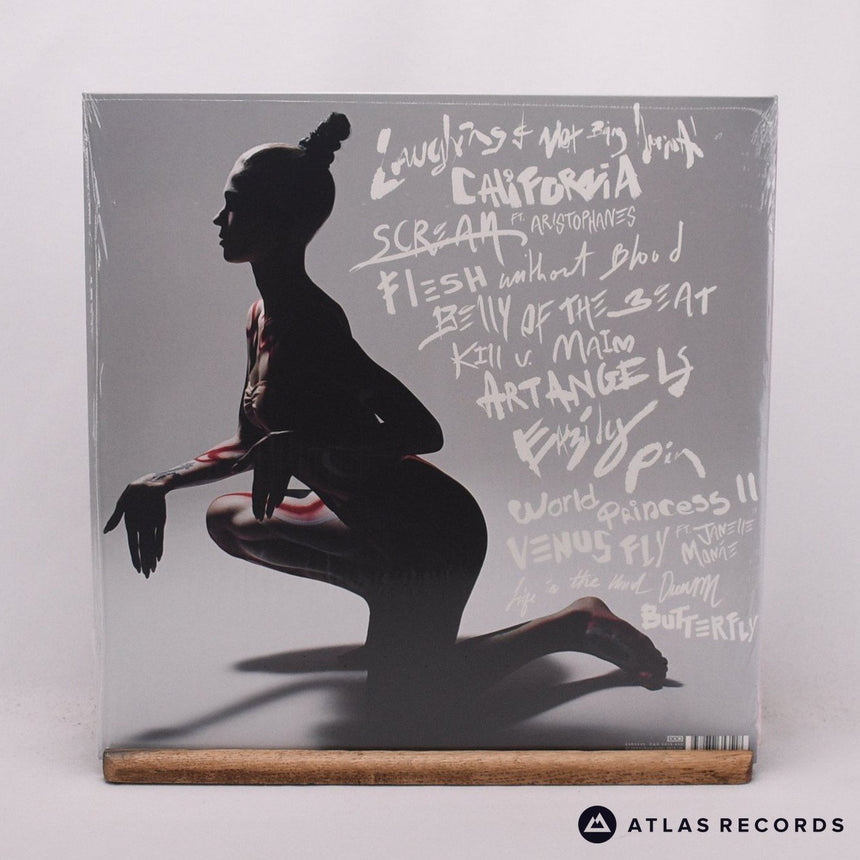 Laughing & Not Being Normal
CALIFORNIA
SCREAM FT. ARISTOPHANES
FLESH without Blood
BELLY OF THE BEAT
Kill V. MAIM
ARTANGELS
Easily
Pin
World Princess II
VENUS FLY FT. JANELLE
MONÁE
Life in the Vivid Dream
BUTTERFLY
ATLAS RECORDS